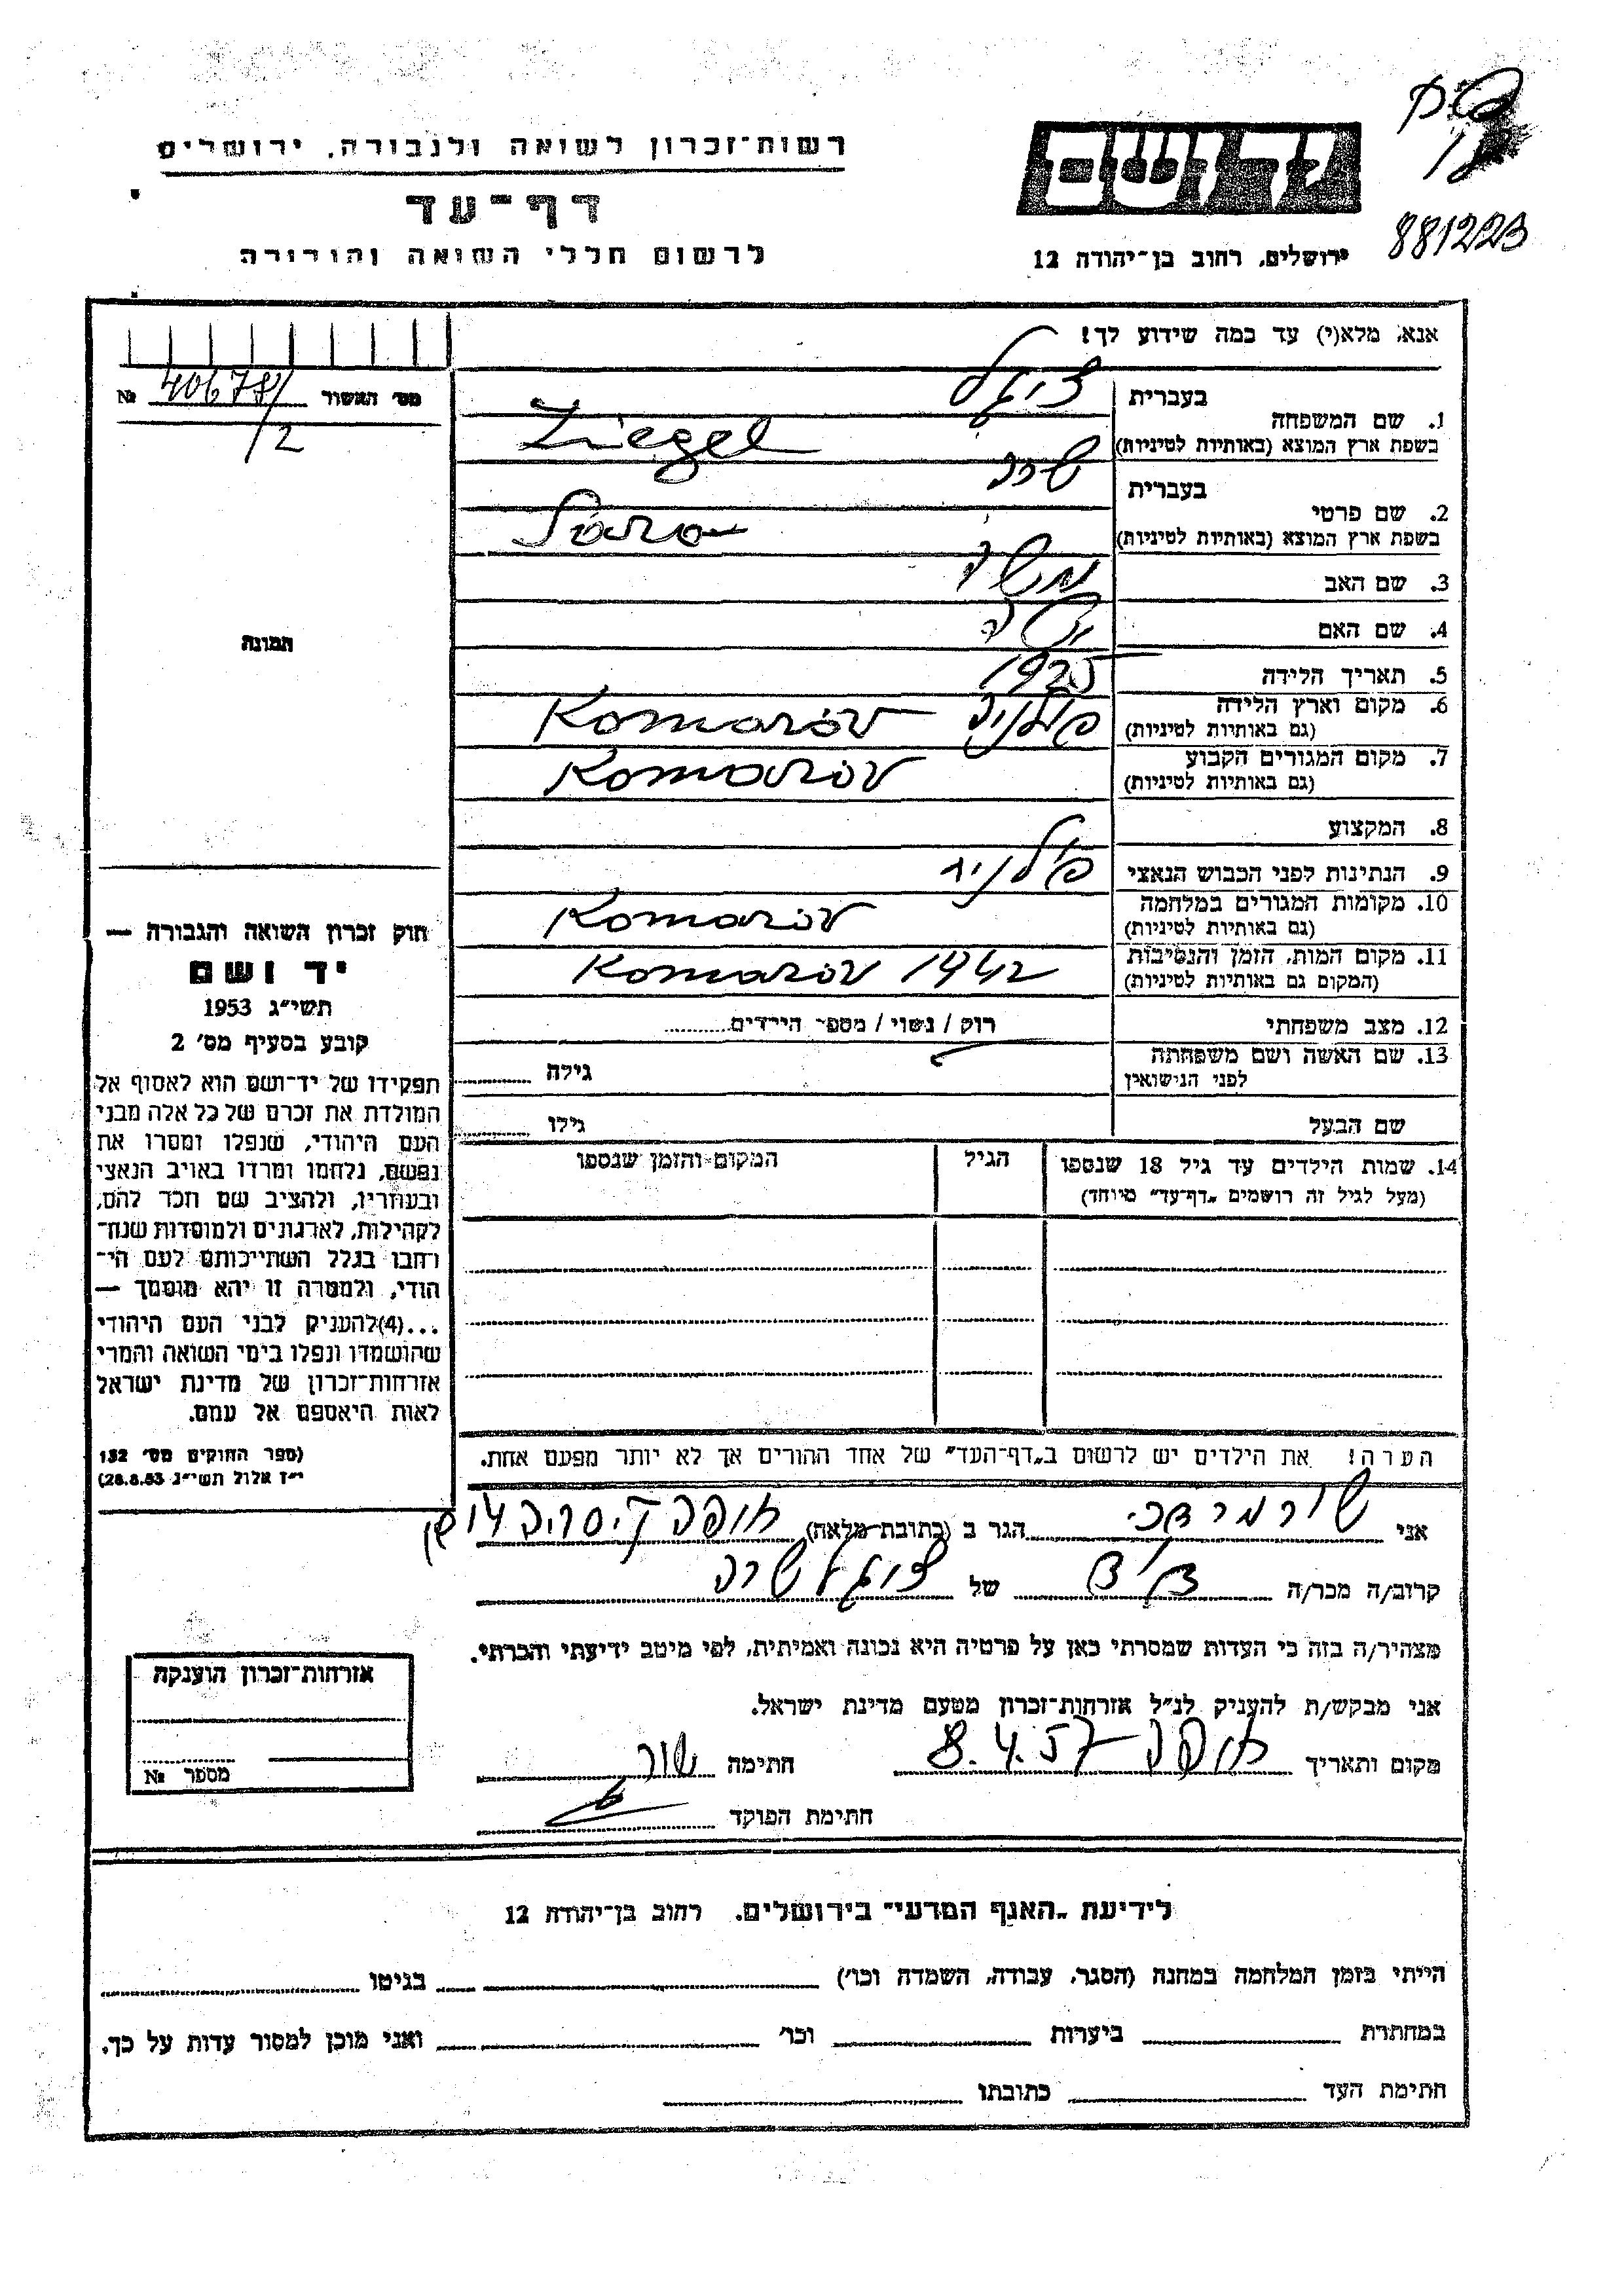 ידושם
881223
ירושלים, רחוב בן־יהודה 12
רשות־זכרון לשואה ולגבורה, ירושלים
דף־עד
לרשום חללי השואה והגבורה
אנא, מלא(י) עד כמה שידוע לך!
מס׳ האשור 406781/2 №
תמונה
1. שם המשפחה
בעברית ציגל
בשפת ארץ המוצא (באותיות לטיניות) Ziegel
2. שם פרטי
בעברית שרה
בשפת ארץ המוצא (באותיות לטיניות) Sara
3. שם האב משה
4. שם האם
5. תאריך הלידה 1925
6. מקום וארץ הלידה
(גם באותיות לטיניות) פולניה Komarov
7. מקום המגורים הקבוע
(גם באותיות לטיניות) Komarov
8. המקצוע
9. הנתינות לפני הכבוש הנאצי פולניה
10. מקומות המגורים במלחמה
(גם באותיות לטיניות) Komarov
11. מקום המות, הזמן והנסיבות
(המקום גם באותיות לטיניות) Komarov 1942
12. מצב משפחתי רוק / נשוי / מספר הילדים
13. שם האשה ושם משפחתה
לפני הנישואין גילה
שם הבעל גילו
14. שמות הילדים עד גיל 18 שנספו הגיל המקום והזמן שנספו
(מעל לגיל זה רושמים „דף־עד” מיוחד)
הערה! את הילדים יש לרשום ב„דף־העד” של אחד ההורים אך לא יותר מפעם אחת.
חוק זכרון השואה והגבורה —
יד ושם
תשי״ג 1953
קובע בסעיף מס׳ 2
תפקידו של יד־ושם הוא לאסוף אל
המולדת את זכרם של כל אלה מבני
העם היהודי, שנפלו ומסרו את
נפשם, נלחמו ומרדו באויב הנאצי
ובעוזריו, ולהציב שם וזכר להם,
לקהילות, לארגונים ולמוסדות שנח־
רחבו בגלל השתייכותם לעם הי־
הודי, ולמטרה זו יהא מוסמך —
...(4)להעניק לבני העם היהודי
שהושמדו ונפלו בימי השואה והמרי
אזרחות־זכרון של מדינת ישראל
לאות היאספם אל עמם.
(ספר החוקים מס׳ 132
י״ז אלול תשי״ג 28.8.53)
אני שור מרדכי הגר ב (כתובת מלאה) חיפה
קרוב/ה מכר/ה של ציגל שרה
מצהיר/ה בזה כי העדות שמסרתי כאן על פרטיה היא נכונה ואמיתית, לפי מיטב ידיעתי והכרתי.
אני מבקש/ת להעניק לנ״ל אזרחות־זכרון מטעם מדינת ישראל.
מקום ותאריך חיפה 8.4.57 חתימה שור
חתימת הפוקד
אזרחות־זכרון הוענקה
מספר №
לידיעת „האגף המדעי” בירושלים, רחוב בן־יהודה 12
הייתי בזמן המלחמה במחנה (הסגר, עבודה, השמדה וכו׳) בגיטו
במחתרת ביערות וכו׳ ואני מוכן למסור עדות על כך.
חתימת העד כתובתו